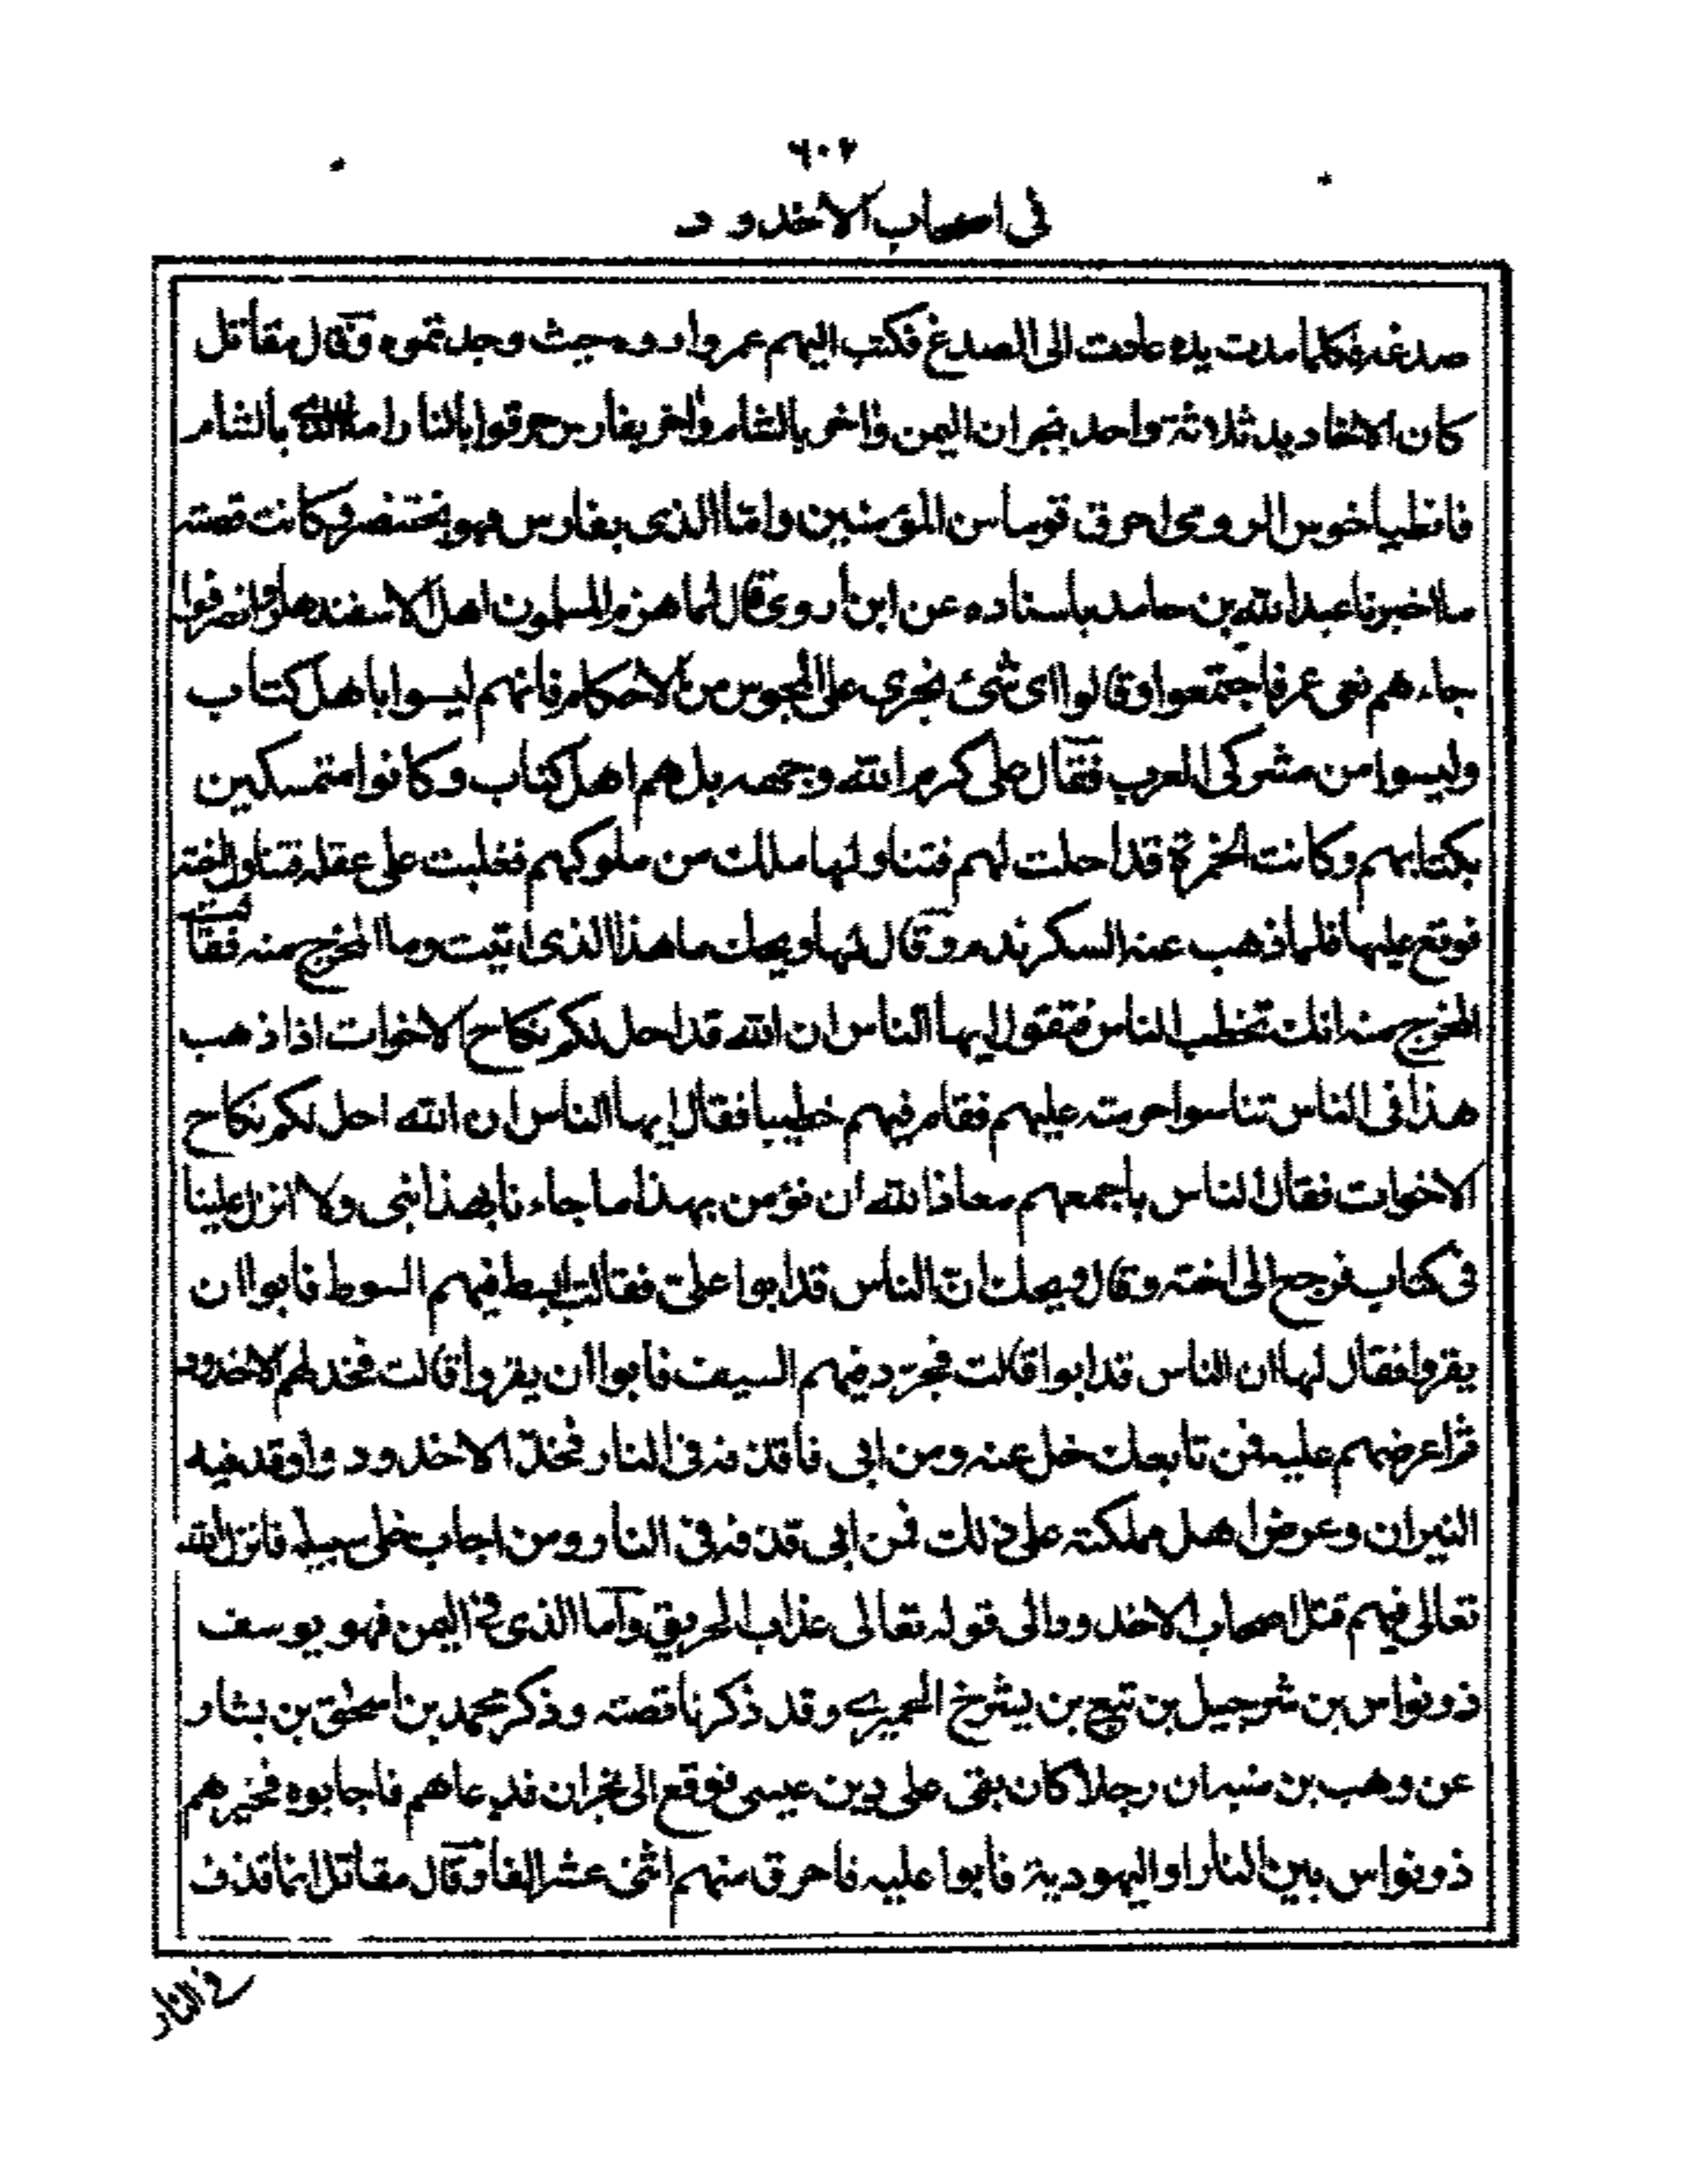 ٦٠٢
في اصحاب الاخدود
صدغه فكلما مدت يده عادت الى الصدغ فكتب اليهم عمر واروه حيث وجدتموه وقال مقاتل
كان الاخاديد ثلاثة واحد بنجران اليمن واخر بالشام واخر بفارس حرقوا بالنار اما الذي بالشام
فانطياخوس الرومي احرق قوما من المؤمنين واما الذي بفارس فهو بختنصر وكانت قصته
ما اخبرنا عبد الله بن حامد باسناده عن ابن اروى قال لما هزم المسلمون اهل الاسفندهار وانصرفوا
جاءهم نعى عمر فاجتمعوا وقالوا اى شئ نجرى على المجوس من الاحكام فانهم ليسوا باهل كتاب
وليسوا من مشركى العرب فقال على كرم الله وجهه بل هم اهل كتاب وكانوا متمسكين
بكتابهم وكانت الخمرة قد احلت لهم فتناولها ملك من ملوكهم فغلبت على عقله فتناول اخته
فوقع عليها فلما ذهب عنه السكر ندم وقال لها ويحك ما هذا الذى اتيت وما المخرج منه فقالت
المخرج منه انك تخطب الناس فتقول ايها الناس ان الله قد احل لكم نكاح الاخوات اذا ذهب
هذا فى الناس تناسوا حرمته عليهم فقام فيهم خطيبا فقال ايها الناس ان الله احل لكم نكاح
الاخوات فقال الناس باجمعهم معاذ الله ان نؤمن بهذا ما جاءنا بهذا نبى ولا انزل علينا
فى كتاب فرجع الى اخته وقال ويحك انّ الناس قد ابوا علىّ فقالت ابسط فيهم السوط فابوا ان
يقروا فقال لها ان الناس قد ابوا قالت فجرّد فيهم السيف فابوا ان يقروا قالت فخد لهم الاخدود
ثم اعرضهم عليه فمن تابعك خل عنه ومن ابى فاقذفه فى النار فخدّ الاخدود واوقد فيه
النيران وعرض اهل مملكته على ذلك فمن ابى قذفه فى النار ومن اجاب خلى سبيله فانزل الله
تعالى فيهم قتل اصحاب الاخدود الى قوله تعالى عذاب الحريق واما الذى فى اليمن فهو يوسف
ذو نواس بن شرحبيل بن تبع بن يشرخ الحميرى وقد ذكرنا قصته وذكر محمد بن اسحٰق بن بشار
عن وهب بن منبه ان رجلا كان بقى على دين عيسى فوقع الى نجران فدعاهم فاجابوه فخيرهم
ذو نواس بين النار او اليهودية فابوا عليه فاحرق منهم اثنى عشر الفا وقال مقاتل انما قذف
فى النار